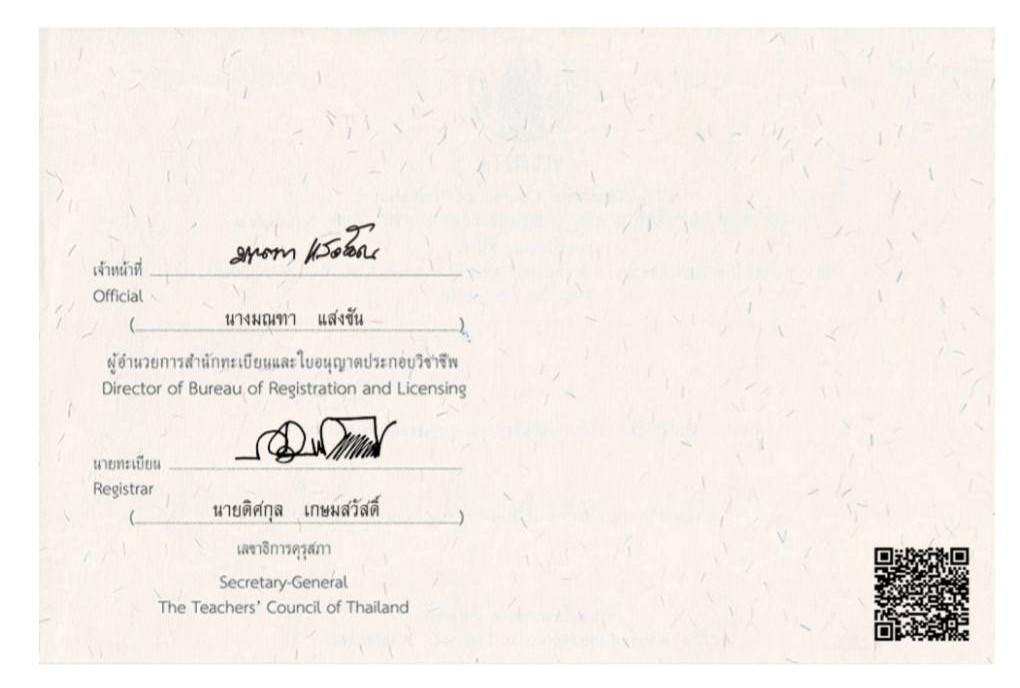 เจ้าหน้าที่
Official
( นางมณฑา แส่งชัน )
ผู้อำนวยการสำนักทะเบียนและใบอนุญาตประกอบวิชาชีพ
Director of Bureau of Registration and Licensing
นายทะเบียน
Registrar
( นายดิศกุล เกษมสวัสดิ์ )
เลขาธิการคุรุสภา
Secretary-General
The Teachers' Council of Thailand